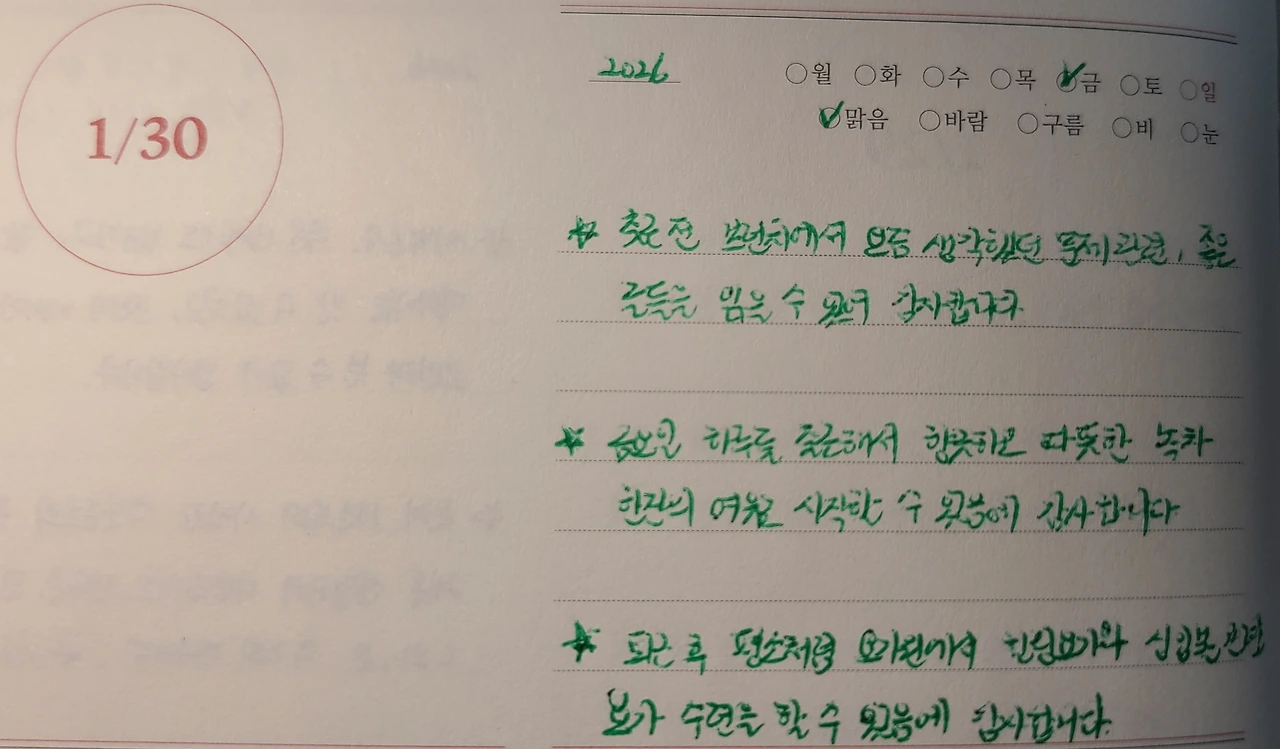 1/30
2026
월 화 수 목 금 토 일
맑음 바람 구름 비 눈
출근 전 브런치에서 요즘 생각했던 문제 관련, 좋은
글들을 읽을 수 있어 감사합니다.
금요일 하루를 출근해서 향긋하고 따뜻한 녹차
한잔의 여유로 시작할 수 있음에 감사합니다
퇴근 후 평소처럼 요가원에서
요가 수련을 할 수 있음에 감사합니다.